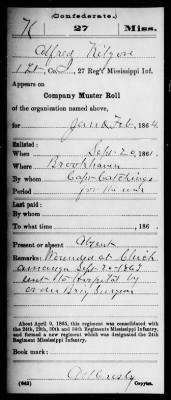 (Confederate.)
K 27 Miss.
Alfred Kilgore
1 Lt., Co. , 27 Reg't Mississippi Inf.
Appears on
Company Muster Roll
of the organization named above,
for Jan & Feb, 1864
Enlisted:
When Sept 20, 1861.
Where Brookhaven
By whom Capt Catchings
Period for the war
Last paid:
By whom
To what time , 186 .
Present or absent Absent
Remarks: Wounded at Chick
amauga Sept 20 1863
sent to hospital by
order Brig Surgeon
About April 9, 1865, this regiment was consolidated with
the 24th, 29th, 30th and 34th Regiments Mississippi Infantry,
and formed a new regiment which was designated the 24th
Regiment Mississippi Infantry.
Book mark:
(642) Copyist.